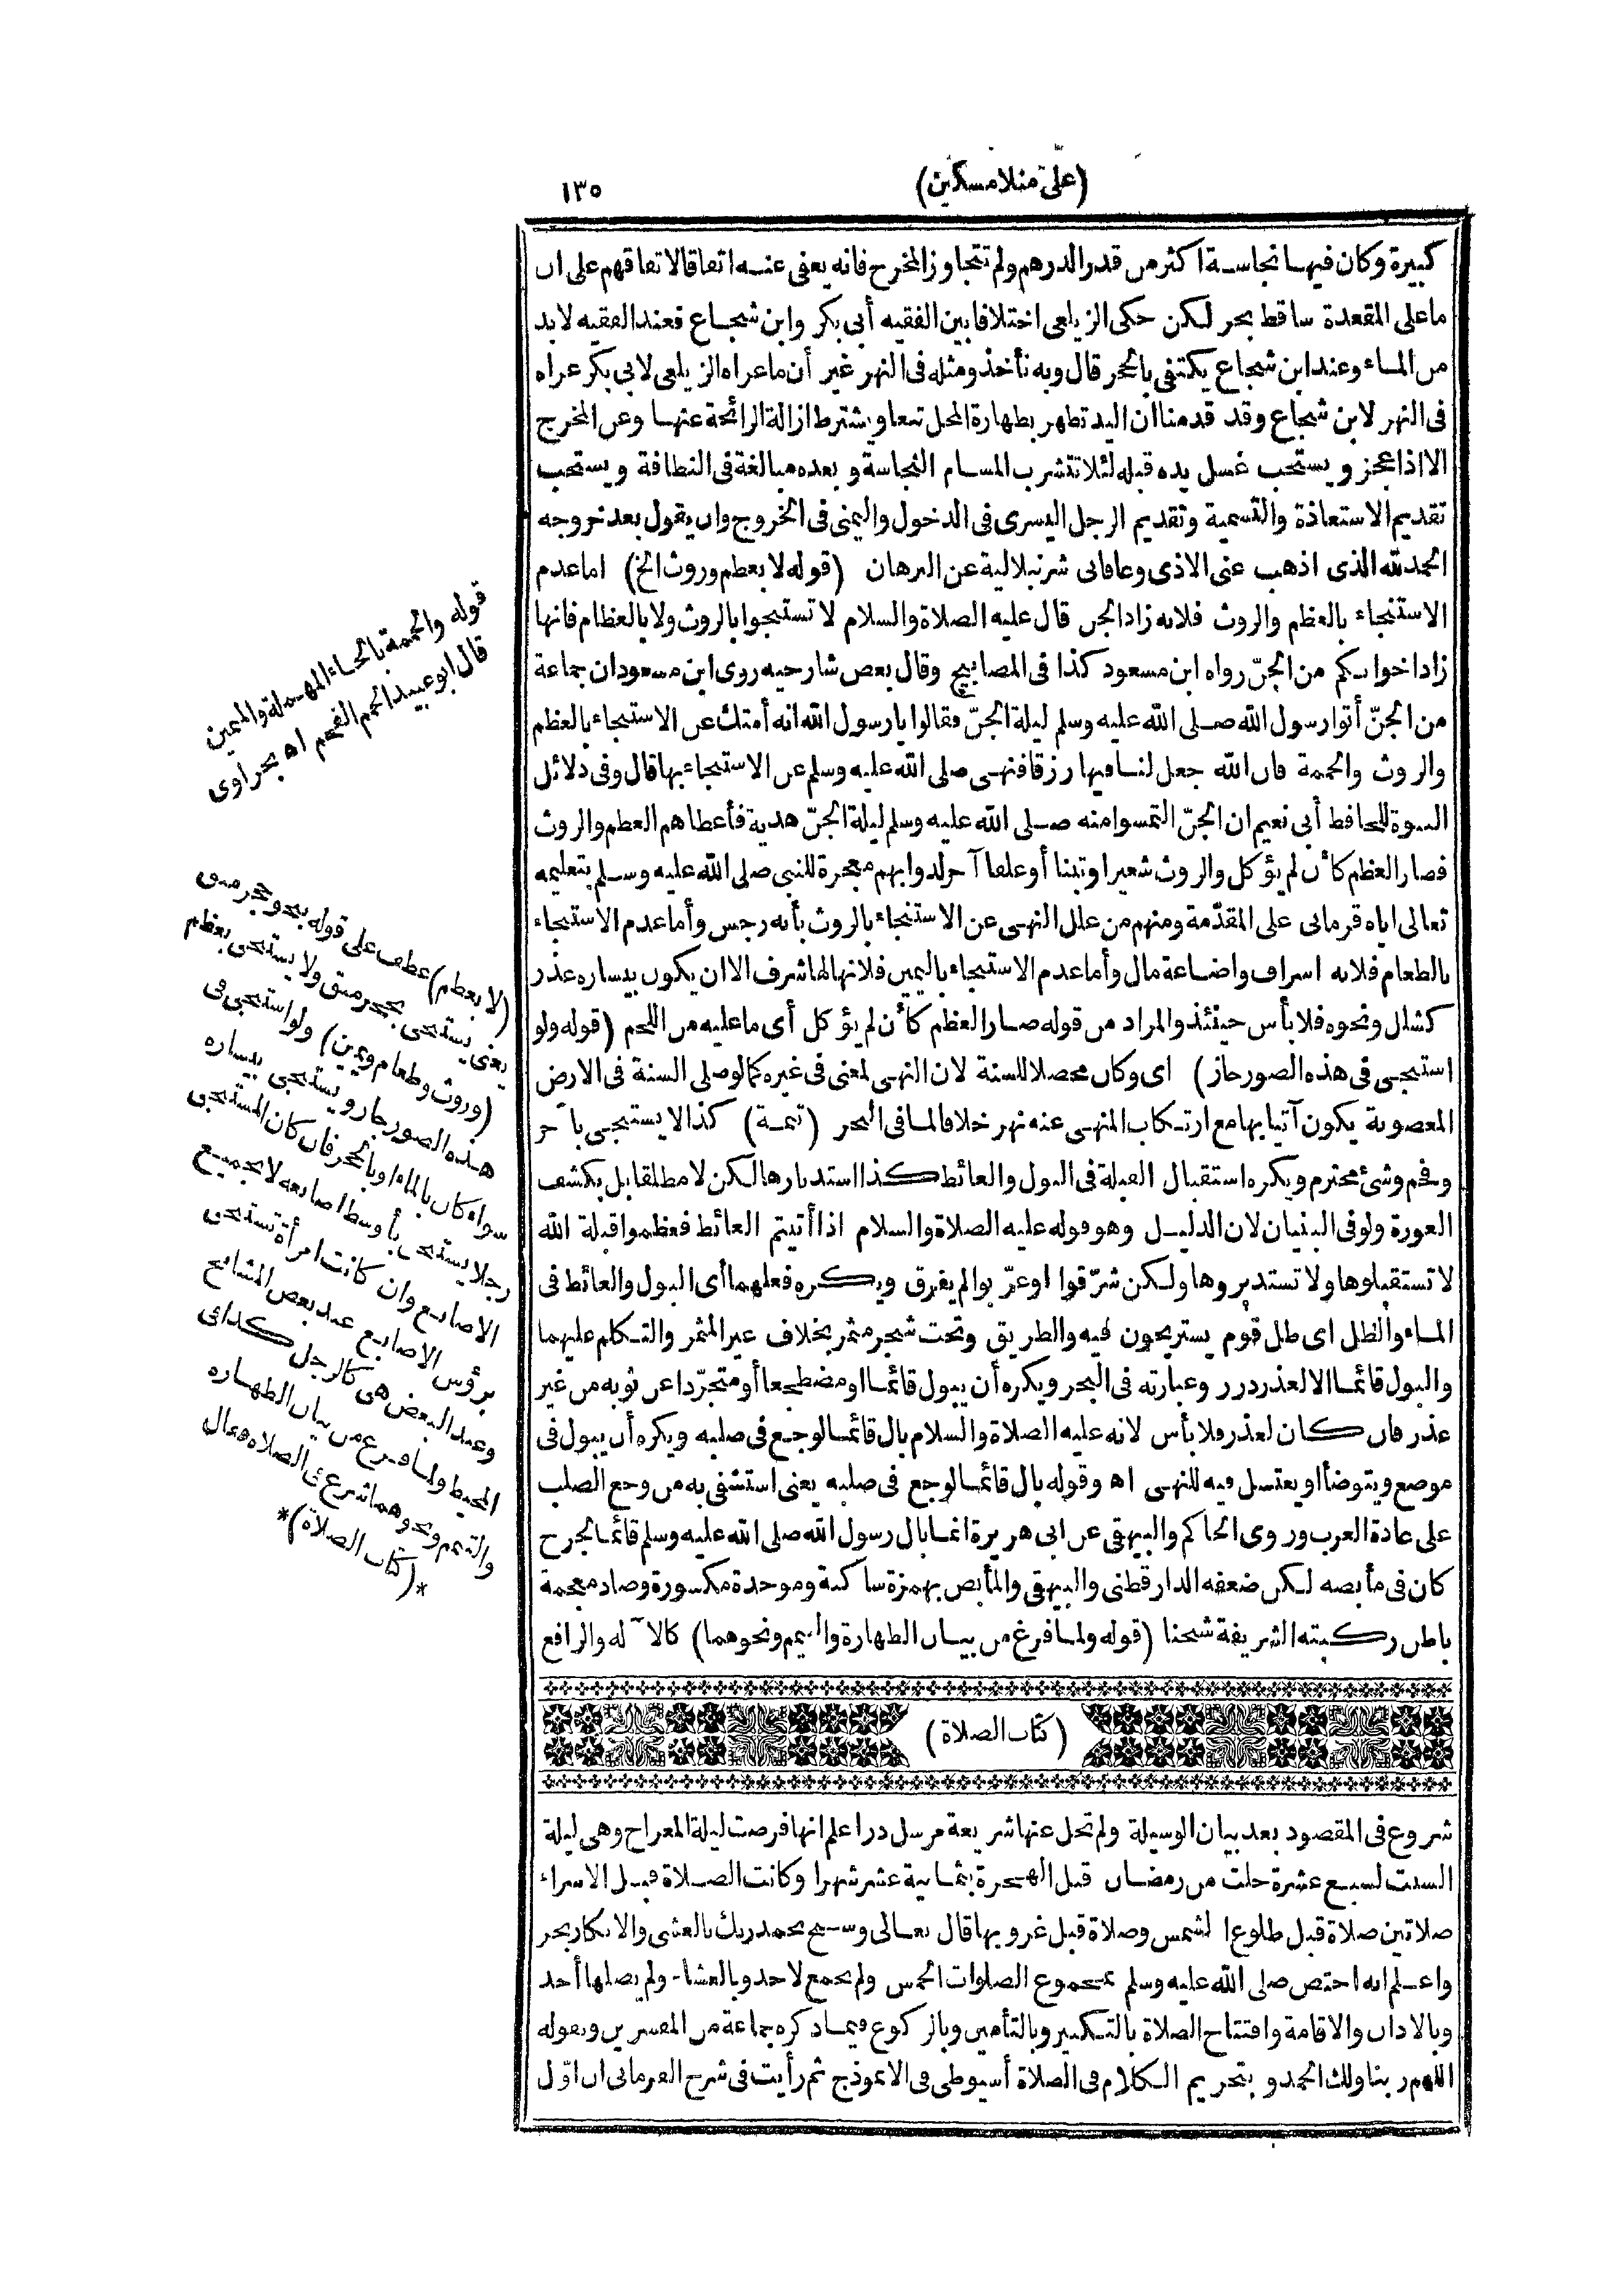 (على منلا مسكين) ١٣٥
كبيرة وكان فيها نجاسة اكثر من قدر الدرهم ولم تتجاوز المخرج فانه يعفى عنه اتفاقا لاتفاقهم على ان
ما على المقعدة ساقط بحر لكن حكى الزيلعى اختلافا بين الفقيه أبى بكر وابن شجاع فعند الفقيه لا بد
من الماء وعند ابن شجاع يكتفى بالحجر قال وبه نأخذ ومثله فى النهر غير أن ما عزاه الزيلعى لابى بكر عزاه
فى النهر لابن شجاع وقد قدمنا ان اليد تطهر بطهارة المحل تبعا ويشترط ازالة الرائحة عنها وعن المخرج
الا اذا عجز ويستحب غسل يده قبله لئلا تتشرب المسام النجاسة وبعده مبالغة فى النظافة ويستحب
تقديم الاستعاذة والتسمية وتقديم الرجل اليسرى فى الدخول واليمنى فى الخروج وان يقول بعد خروجه
الحمد لله الذى اذهب عنى الاذى وعافانى شرنبلالية عن البرهان (قوله لا بعظم وروث الخ) اما عدم
الاستنجاء بالعظم والروث فلانه زاد الجن قال عليه الصلاة والسلام لا تستنجوا بالروث ولا بالعظام فانها
زاد اخوانكم من الجنّ رواه ابن مسعود كذا فى المصابيح وقال بعض شارحيه روى ابن مسعود ان جماعة
من الجنّ أتوا رسول الله صلى الله عليه وسلم ليلة الجنّ فقالوا يا رسول الله انه أمتك عن الاستنجاء بالعظم
والروث والحممة فان الله جعل لنا فيها رزقا فنهى صلى الله عليه وسلم عن الاستنجاء بها قال وفى دلائل
النبوة للحافظ أبى نعيم ان الجنّ التمسوا منه صلى الله عليه وسلم ليلة الجنّ هدية فأعطاهم العظم والروث
فصار العظم كأن لم يؤكل والروث شعيرا وتبنا أو علفا آخر لدوابهم معجزة للنبى صلى الله عليه وسلم بتعليمه
تعالى اياه قرمانى على المقدّمة ومنهم من علل النهى عن الاستنجاء بالروث بأنه رجس وأما عدم الاستنجاء
بالطعام فلانه اسراف واضاعة مال وأما عدم الاستنجاء باليمين فلانها لها شرف الا ان يكون بيساره عذر
كشلل ونحوه فلا بأس حينئذ والمراد من قوله صار العظم كأن لم يؤكل أى ما عليه من اللحم (قوله ولو
استنجى فى هذه الصور جاز) اى وكان محصلا للسنة لان النهى لمعنى فى غيره كما لو صلى السنة فى الارض
المغصوبة يكون آتيا بها مع ارتكاب المنهى عنه نهر خلافا لما فى البحر (تتمة) كذا لا يستنجى بآجر
وفحم وشئ محترم ويكره استقبال القبلة فى البول والغائط كذا استدبارها لكن لا مطلقا بل بكشف
العورة ولو فى البنيان لان الدليل وهو قوله عليه الصلاة والسلام اذا أتيتم الغائط فعظموا قبلة الله
لا تستقبلوها ولا تستدبروها ولكن شرّقوا او غرّبوا لم يفرق ويكره فعلهما أى البول والغائط فى
الماء والظل اى ظل قوم يستريحون فيه والطريق وتحت شجر مثمر بخلاف غير المثمر والتكلم عليهما
والبول قائما الا لعذر درر وعبارته فى البحر ويكره أن يبول قائما او مضطجعا أو متجرّدا عن ثوبه من غير
عذر فان كان لعذر فلا بأس لانه عليه الصلاة والسلام بال قائما لوجع فى صلبه ويكره أن يبول فى
موضع ويتوضأ او يغتسل فيه للنهى اه وقوله بال قائما لوجع فى صلبه يعنى استشفى به من وجع الصلب
على عادة العرب وروى الحاكم والبيهقى عن ابى هريرة انما بال رسول الله صلى الله عليه وسلم قائما لجرح
كان فى مأبضه لكن ضعفه الدارقطنى والبيهقى والمأبض بهمزة ساكنة وموحدة مكسورة وضاد معجمة
باطن ركبته الشريفة شيخنا (قوله ولما فرغ من بيان الطهارة والتيمم ونحوهما) كالآلة والرافع
(كتاب الصلاة)
شروع فى المقصود بعد بيان الوسيلة ولم تخل عنها شريعة مرسل در اعلم انها فرضت ليلة المعراج وهى ليلة
السبت لسبع عشرة خلت من رمضان قبل الهجرة بثمانية عشر شهرا وكانت الصلاة قبل الاسراء
صلاتين صلاة قبل طلوع الشمس وصلاة قبل غروبها قال تعالى وسبح بحمد ربك بالعشى والابكار بحر
واعلم انه اختص صلى الله عليه وسلم بمجموع الصلوات الخمس ولم تجمع لاحد وبالعشاء ولم يصلها أحد
وبالاذان والاقامة وافتتاح الصلاة بالتكبير وبالتأمين وبالركوع فيما ذكره جماعة من المفسرين وبقوله
اللهم ربنا ولك الحمد وبتحريم الكلام فى الصلاة أسيوطى فى الانموذج ثم رأيت فى شرح القرمانى ان اوّل
قوله والحممة بالحاء المهملة والميمين
قال ابو عبيد الحمم الفحم اه بحراوى
(لا بعظم) عطف على قوله بنحو حجر منق
يعنى يستنجى بحجر منق ولا يستنجى بعظم
(وروث وطعام ويمين) ولو استنجى فى
هذه الصور جاز ويستنجى بيساره
سواء كان بالماء او بالحجر فان كان المستنجى
رجلا يستنجى بأوسط اصابعه لا بجميع
الاصابع وان كانت امرأة تستنجى
برؤس الاصابع عند بعض المشايخ
وعند البعض هى كالرجل كذا فى
المحيط ولما فرغ من بيان الطهارة
والتيمم ونحوهما شرع فى الصلاة فقال
*(كتاب الصلاة)*